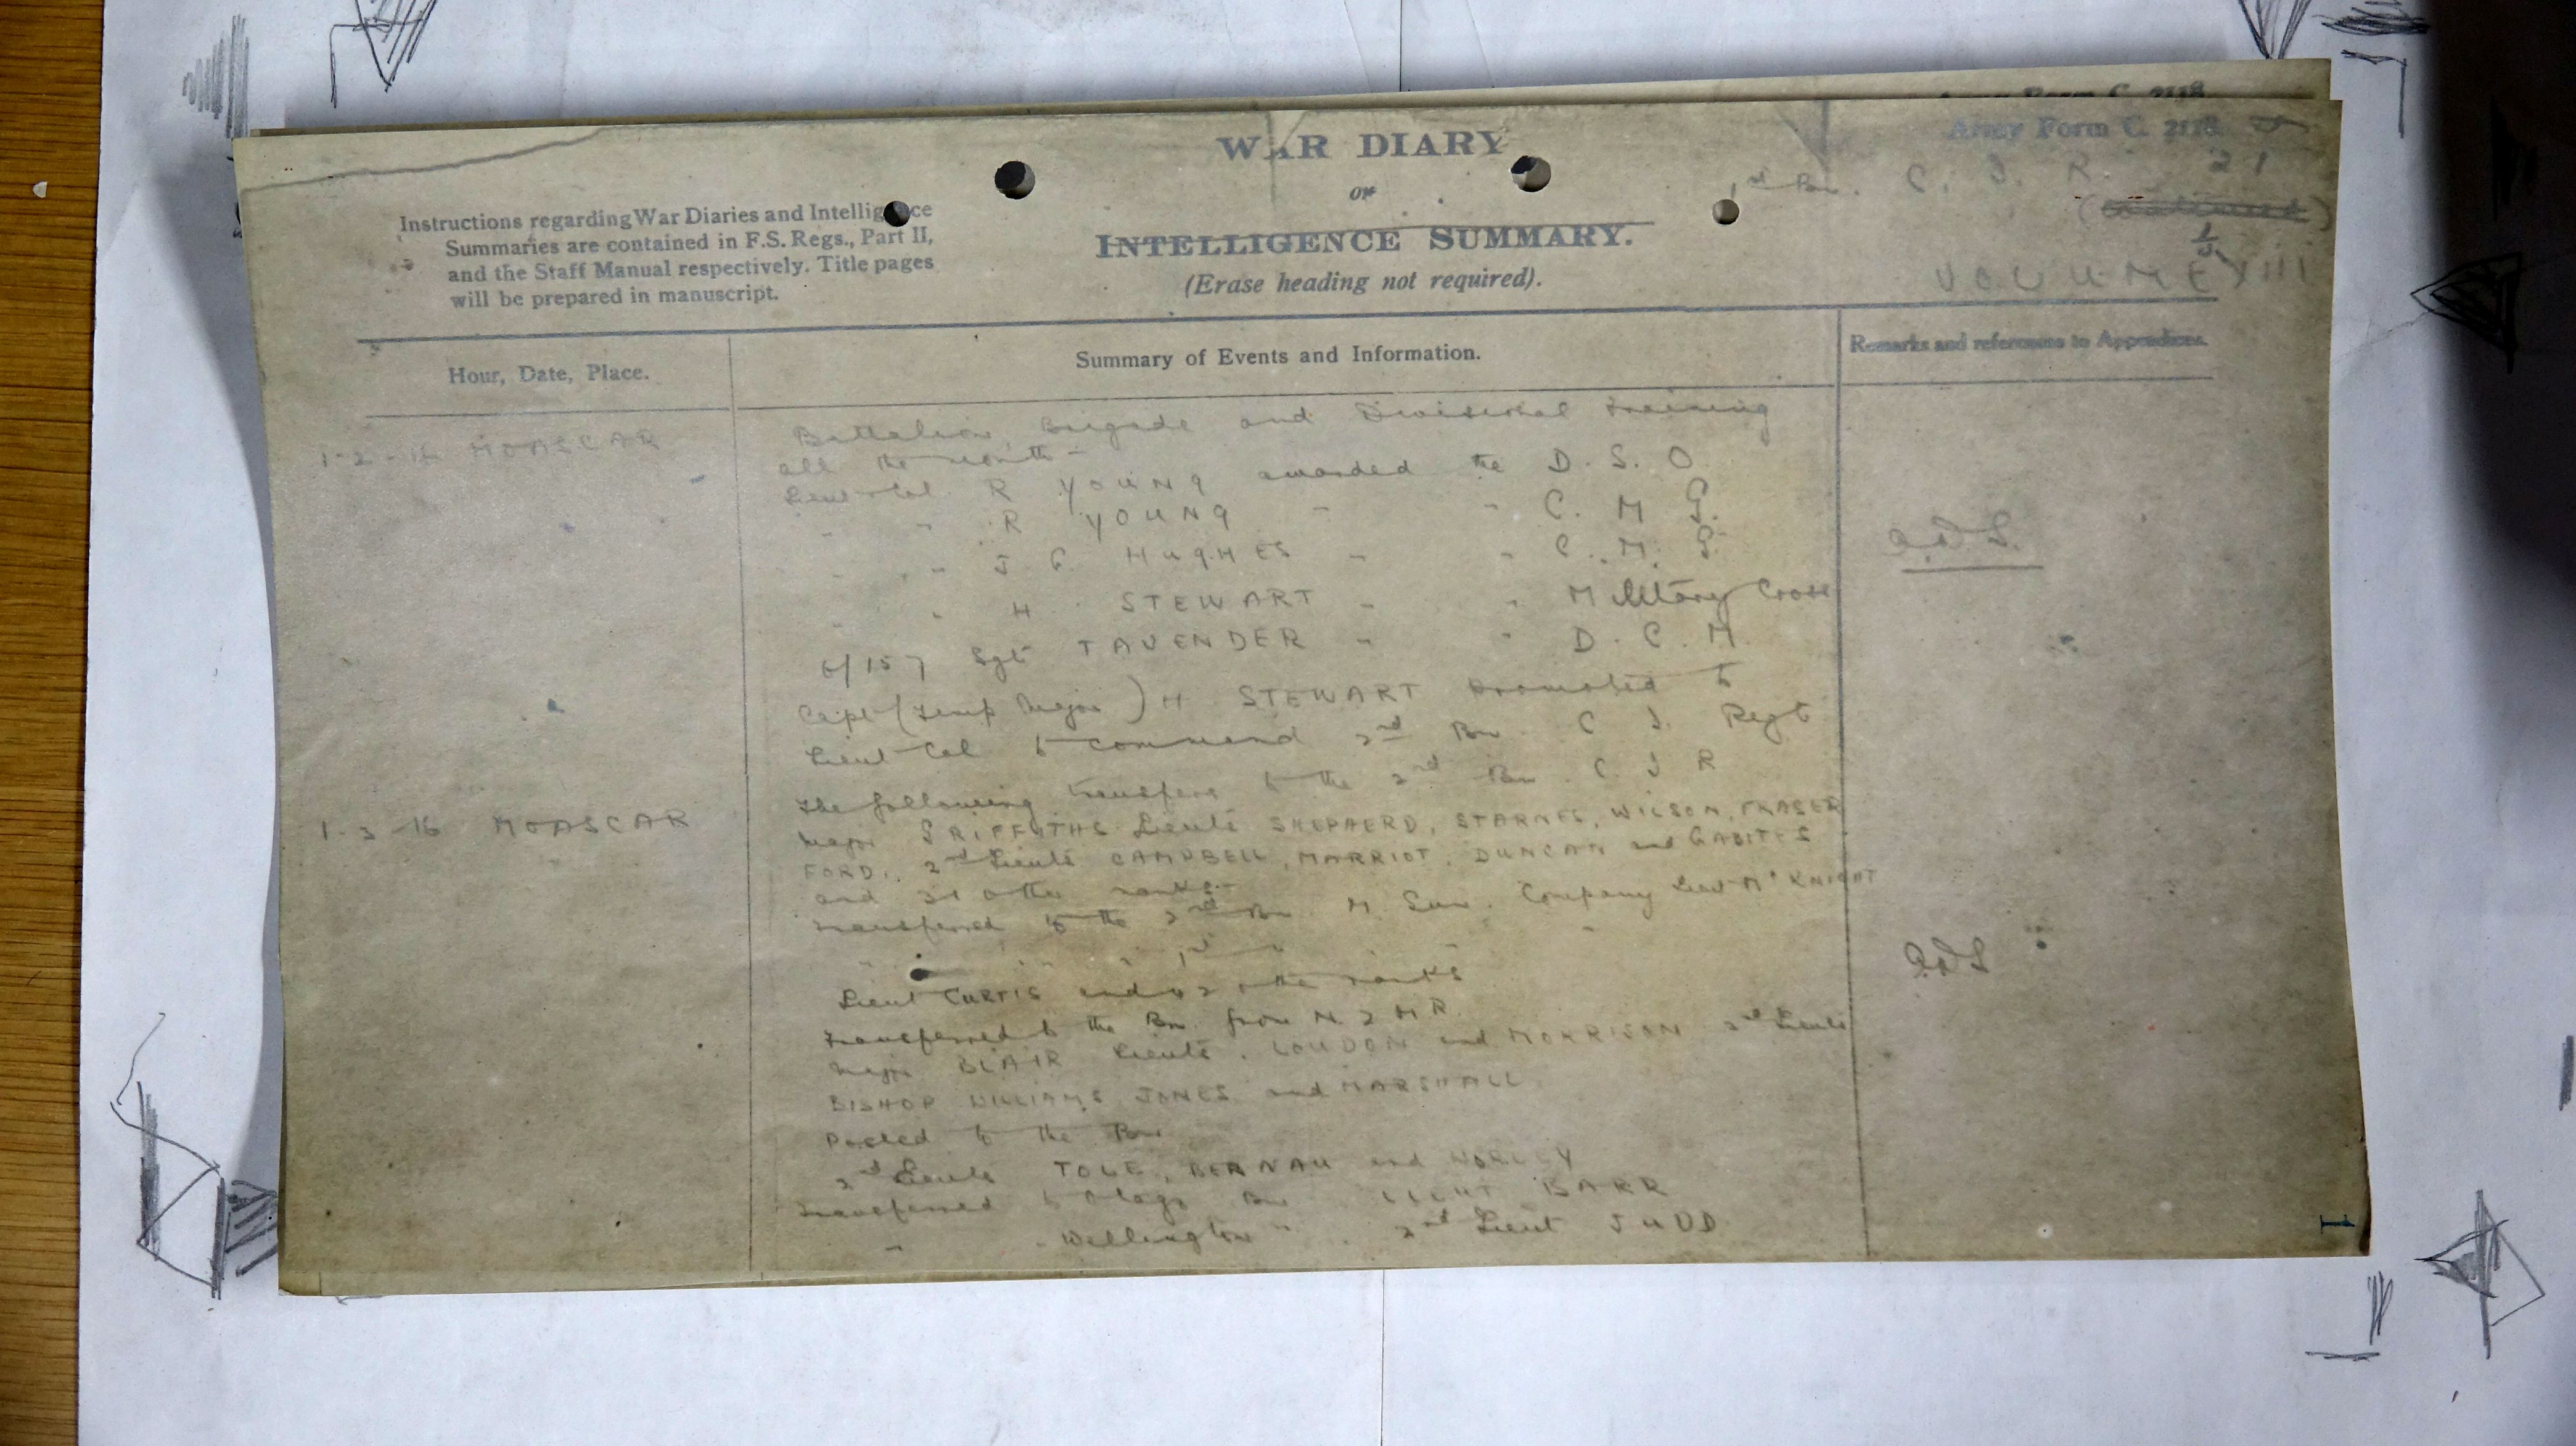 Army Form C. 2118.
Army Form C. 2118.
WAR DIARY
or
INTELLIGENCE SUMMARY.
(Erase heading not required).
Instructions regarding War Diaries and Intelligence
Summaries are contained in F.S. Regs., Part II,
and the Staff Manual respectively. Title pages
will be prepared in manuscript.
1st Bn. C. I. R. 21
VOLUME XIII
Hour, Date, Place.
Summary of Events and Information.
Remarks and references to Appendices.
1-2-16 MOASCAR
Battalion, Brigade and Divisional training
all the month -
Lieut-Col R YOUNG awarded the D. S. O.
" " R YOUNG " " C. M G.
" " J G HUGHES " " C. M. G.
" " H STEWART " " Military Cross
6/157 Sgt TAVENDER " " D. C. M.
Capt (Temp Major) H STEWART promoted to
Lieut Col to command 2nd Bn C I Regt
1-3-16 MOASCAR
The following transfers to the 2nd Bn. C I R
Major GRIFFITHS Lieuts SHEPHERD, STARNES, WILSON, FRASER
FORD, 2nd Lieuts CAMPBELL, MARRIOT, DUNCAN and GABITES
and 31 other ranks -
Transferred to the 2nd Bn M. Gun. Company Lieut McKNIGHT
" " " 1st "
Lieut CURTIS and 42 other ranks
Transferred to the Bn from N. Z M R.
Major BLAIR Lieuts. LOUDON and MORRISON 2nd Lieuts
BISHOP WILLIAMS JONES and MARSHALL
Posted to the Bn
2nd Lieuts TOLE, BERNAU and WORLEY
Transferred to Otago Bn LIEUT BARR
" " Wellington " 2nd Lieut JUDD